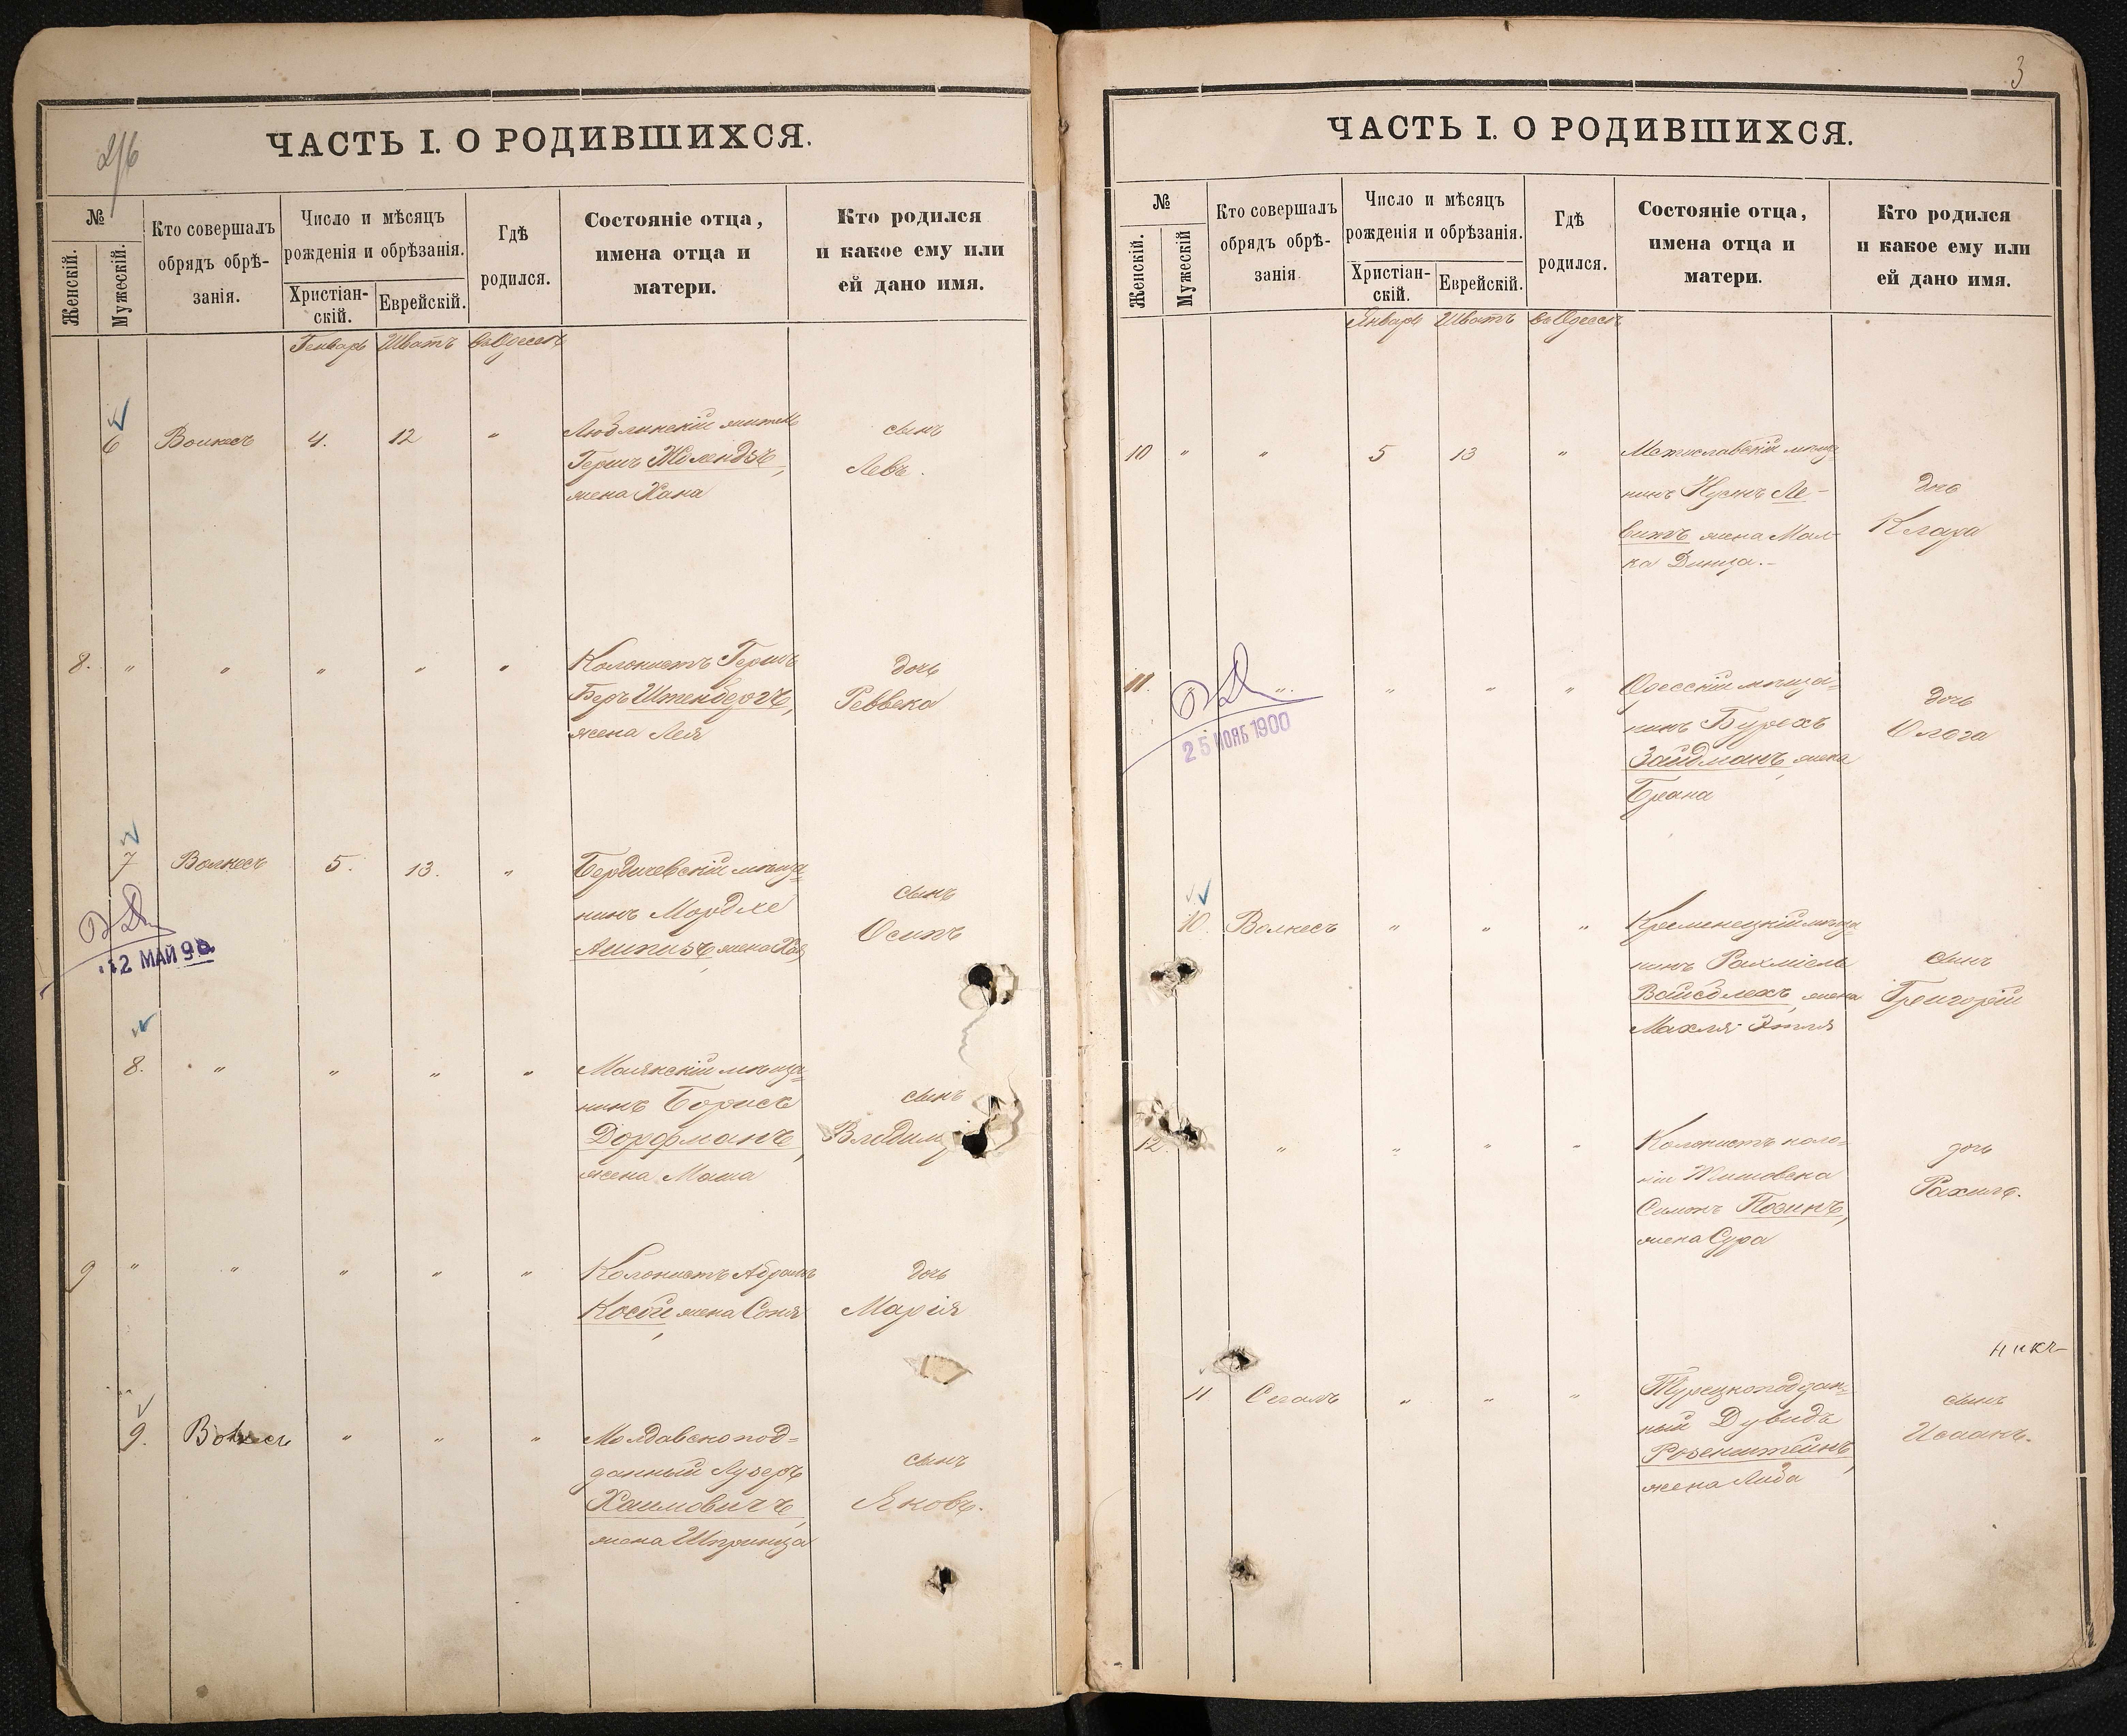 2/6
ЧАСТЬ I. О РОДИВШИХСЯ.
№
Женскій.
Мужескій.
Кто совершалъ
обрядъ обрѣ-
занія.
Число и мѣсяцъ
рожденія и обрѣзанія.
Христіан-
скій.
Еврейскій.
Гдѣ
родился.
Состояніе отца,
имена отца и
матери.
Кто родился
и какое ему или
ей дано имя.
Генварь Шватъ въ Одессѣ
6 Волкесъ 4. 12 "
Люблинскій житель
Гершъ
жена Хана
сынъ
Левъ.
8. " " " " "
Колонистъ Гершъ
Беръ Штенбергъ,
жена Лея
дочь
Реввека
7 Волкесъ 5. 13. "
Бердичевскій мѣща-
нинъ Мордхе
жена Хая
сынъ
Осипъ
12 МАЙ 98
8. " " " "
Маякскій мѣща-
нинъ Борисъ
Дорфманъ,
жена Маша
сынъ
Владим
9 " " " " "
Колонистъ Абрамъ
Косой, жена Соня
дочь
Марія
9. Волкесъ " " "
Молдавскопод-
данный Лузеръ
Хаимовичъ,
жена Шпринца
сынъ
Яковъ.
3
ЧАСТЬ I. О РОДИВШИХСЯ.
№
Женскій.
Мужескій
Кто совершалъ
обрядъ обрѣ-
занія
Число и мѣсяцъ
рожденія и обрѣзанія.
Христіан-
скій.
Еврейскій.
Гдѣ
родился.
Состояніе отца,
имена отца и
матери.
Кто родился
и какое ему или
ей дано имя.
Январь Шватъ въ Одессѣ
10 " " 5 13 "
Мстиславскій мѣща-
нинъ Нусонъ Ле-
витъ жена Мал-
ка Двиша.-
дочь
Клара
11. " " " " "
Одесскій мѣща-
нинъ Бурехъ
Зайдманъ, жена
Брана
дочь
Ольга
25 НОЯБ 1900
10. Волкесъ " " "
Кременецкій мѣща-
нинъ Рахміель
Вайсблехъ, жена
Махля-Этля
сынъ
Григорій
12. " " " "
Колонистъ коло-
ніи
Симонъ
жена Сура
дочь
Рахиль.
11 Сегалъ " " "
Турецкоподдан-
ный Дувидъ
Розенштейнъ,
жена Либа
сынъ
Исаакъ.